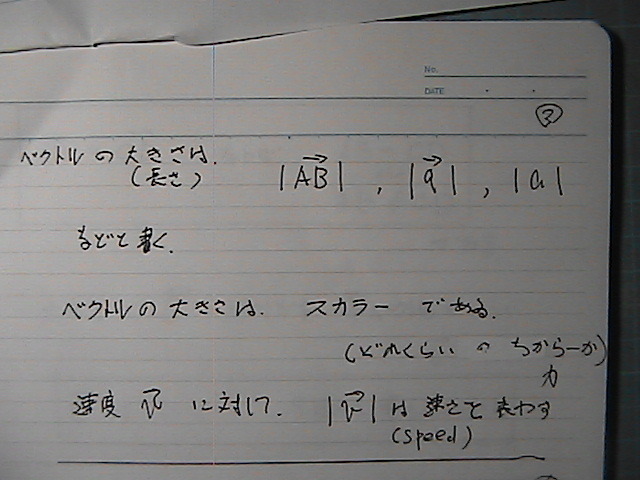 No.
DATE
③
ベクトルの大きさは. |AB→| , |a→| , |a|
(長さ)
などと書く.
ベクトルの大きさは. スカラー である.
(どれくらい の ちからーか)
力
速度 v→ に対して. |v→| は 速さを表わす
(speed)